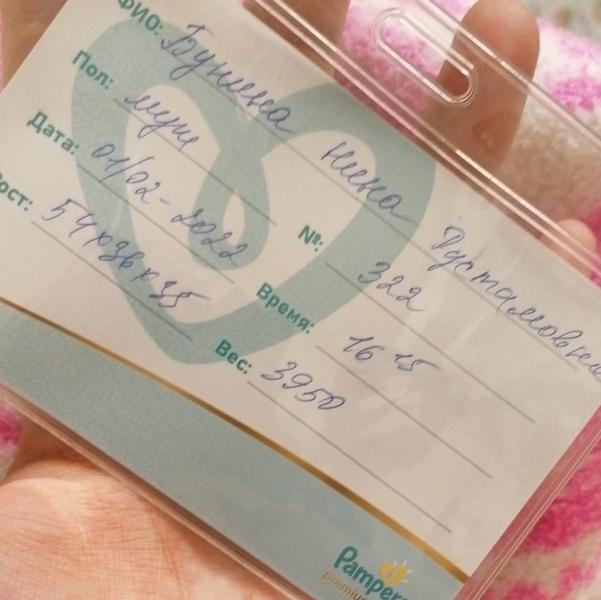 ФИО: Бунина Нина Рустамовна
Пол: муж
Дата: 01/02-2022 №: 322
Рост: 54х36х35 Время: 16 15
Вес: 3950
Pampers
premium